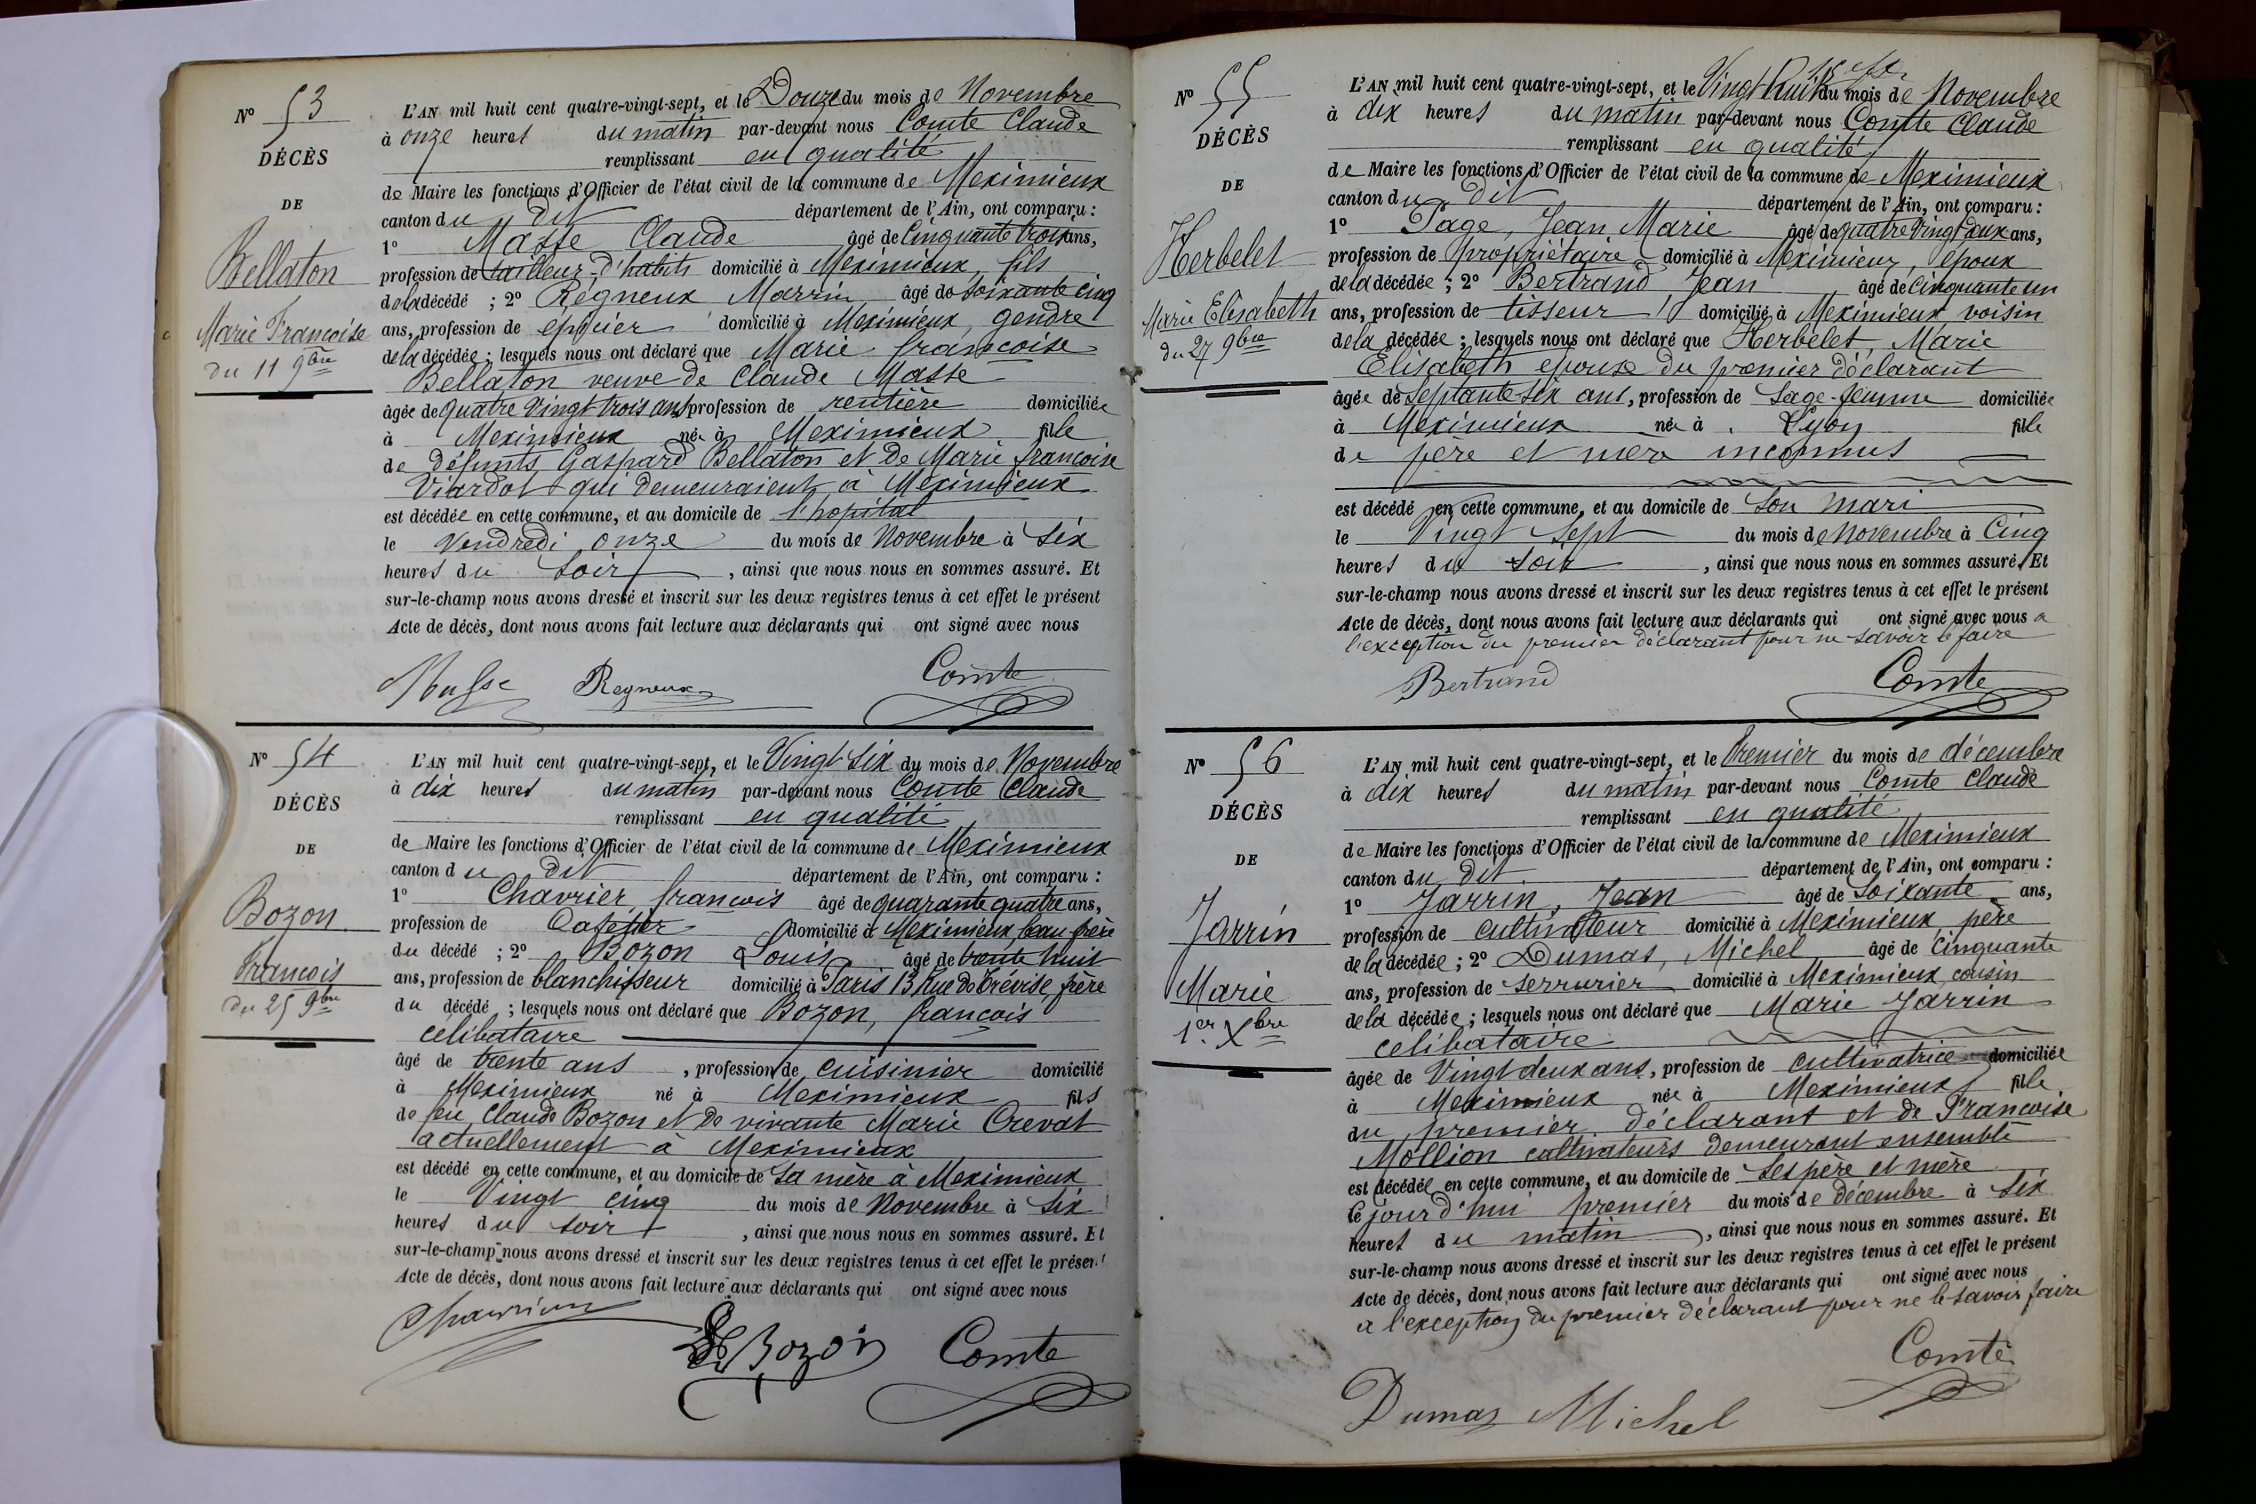 N° 53
DÉCÈS
DE
Bellaton
Marie Françoise
du 11 9bre
L'AN mil huit cent quatre-vingt-sept, et le Douze du mois de Novembre
à onze heures du matin par-devant nous Comte Claude
remplissant en qualité
de Maire les fonctions d'Officier de l'état civil de la commune de Meximieux
canton du dit département de l'Ain, ont comparu :
1° Masse Claude âgé de Cinquante trois ans,
profession de tailleur d'habits domicilié à Meximieux, fils
de la décédé ; 2° Régneux Marrin âgé de soixante cinq
ans, profession de épicier domicilié à Meximieux, gendre
de la décédée ; lesquels nous ont déclaré que Marie françoise
Bellaton veuve de Claude Masse
âgée de quatre vingt trois ans profession de rentière domiciliée
à Meximieux née à Meximieux fille
de défunts Gaspard Bellaton et de Marie françoise
Viardot qui demeuraient à Meximieux
est décédée en cette commune, et au domicile de l'hopital
le vendredi onze du mois de Novembre à Six
heures du soir, ainsi que nous nous en sommes assuré. Et
sur-le-champ nous avons dressé et inscrit sur les deux registres tenus à cet effet le présent
Acte de décès, dont nous avons fait lecture aux déclarants qui ont signé avec nous
Masse Regneux Comte
N° 54
DÉCÈS
DE
Bozon
François
du 25 9bre
L'AN mil huit cent quatre-vingt-sept, et le Vingt Six du mois de Novembre
à dix heures du matin par-devant nous Comte Claude
remplissant en qualité
de Maire les fonctions d'Officier de l'état civil de la commune de Meximieux
canton du dit département de l'Ain, ont comparu :
1° Chavrier, françois âgé de quarante quatre ans,
profession de Cafetier domicilié à Meximieux, beau frère
du décédé ; 2° Bozon Louis âgé de trente huit
ans, profession de blanchisseur domicilié à Paris 13 Rue de Trévise, frère
du décédé ; lesquels nous ont déclaré que Bozon, françois
célibataire
âgé de trente ans, profession de cuisinier domicilié
à Meximieux né à Meximieux fils
de feu Claude Bozon et de vivante Marie Crevat
actuellement à Meximieux
est décédé en cette commune, et au domicile de sa mère à Meximieux
le Vingt cinq du mois de Novembre à Six
heures du soir, ainsi que nous nous en sommes assuré. Et
sur-le-champ nous avons dressé et inscrit sur les deux registres tenus à cet effet le présent
Acte de décès, dont nous avons fait lecture aux déclarants qui ont signé avec nous
Chavrier Bozon Comte
N° 55
DÉCÈS
DE
Herbelet
Marie Elisabeth
du 27 9bre
L'AN mil huit cent quatre-vingt-sept, et le Vingt huit du mois de Novembre
à dix heures du matin par-devant nous Comte Claude
remplissant en qualité
de Maire les fonctions d'Officier de l'état civil de la commune de Meximieux
canton du dit département de l'Ain, ont comparu :
1° Page, Jean Marie âgé de quatre vingt deux ans,
profession de propriétaire domicilié à Meximieux, époux
de la décédée ; 2° Bertrand Jean âgé de Cinquante un
ans, profession de tisseur domicilié à Meximieux voisin
de la décédée ; lesquels nous ont déclaré que Herbelet, Marie
Elisabeth épouse du premier déclarant
âgée de Septante six ans, profession de Sage-femme domiciliée
à Meximieux née à Lyon fille
de père et mère inconnus
est décédé en cette commune, et au domicile de son mari
le Vingt Sept du mois de Novembre à Cinq
heures du soir, ainsi que nous nous en sommes assuré. Et
sur-le-champ nous avons dressé et inscrit sur les deux registres tenus à cet effet le présent
Acte de décès, dont nous avons fait lecture aux déclarants qui ont signé avec nous a
l'exception du premier déclarant pour ne savoir le faire
Bertrand Comte
N° 56
DÉCÈS
DE
Jarrin
Marie
1er Xbre
L'AN mil huit cent quatre-vingt-sept, et le Premier du mois de décembre
à dix heures du matin par-devant nous Comte Claude
remplissant en qualité
de Maire les fonctions d'Officier de l'état civil de la commune de Meximieux
canton du dit département de l'Ain, ont comparu :
1° Jarrin, Jean âgé de Soixante ans,
profession de cultivateur domicilié à Meximieux, père
de la décédée ; 2° Dumas, Michel âgé de Cinquante
ans, profession de serrurier domicilié à Meximieux, cousin
de la décédée ; lesquels nous ont déclaré que Marie Jarrin
celibataire
âgée de Vingt deux ans, profession de cultivatrice domiciliée
à Meximieux née à Meximieux fille
du premier déclarant et de Françoise
Mollion cultivateurs demeurant ensemble
est décédée en cette commune, et au domicile de ses père et mère
le jourd'hui premier du mois de décembre à six
heures du matin, ainsi que nous nous en sommes assuré. Et
sur-le-champ nous avons dressé et inscrit sur les deux registres tenus à cet effet le présent
Acte de décès, dont nous avons fait lecture aux déclarants qui ont signé avec nous
a l'exception du premier déclarant pour ne le savoir faire
Comte
Dumas Michel